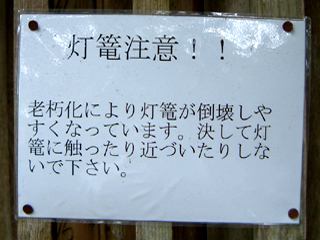 灯篭注意！！
老朽化により灯篭が倒壊しや
すくなっています。決して灯
篭に触ったり近づいたりしな
いで下さい。